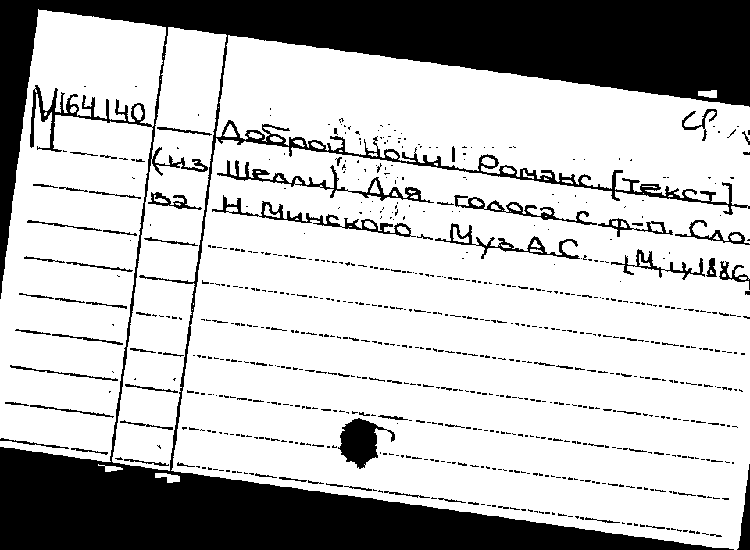 М164140
Доброй ночи! Романс. [Текст]
(из Шелли). Для голоса с ф-п. Сло-
ва Н. Минского. Муз. А. С. [М, ц, 1886]